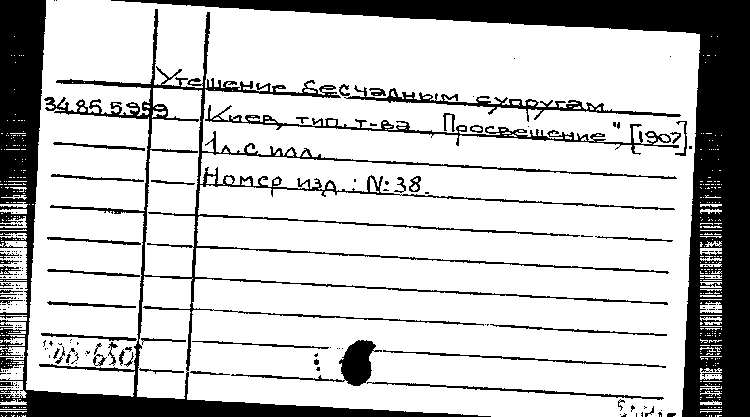 Утешение бесчадным супругам
34.85.5.959. Киев, тип. т-ва "Просвещение", [190?].
1л. с илл.
Номер изд.: N: 38.